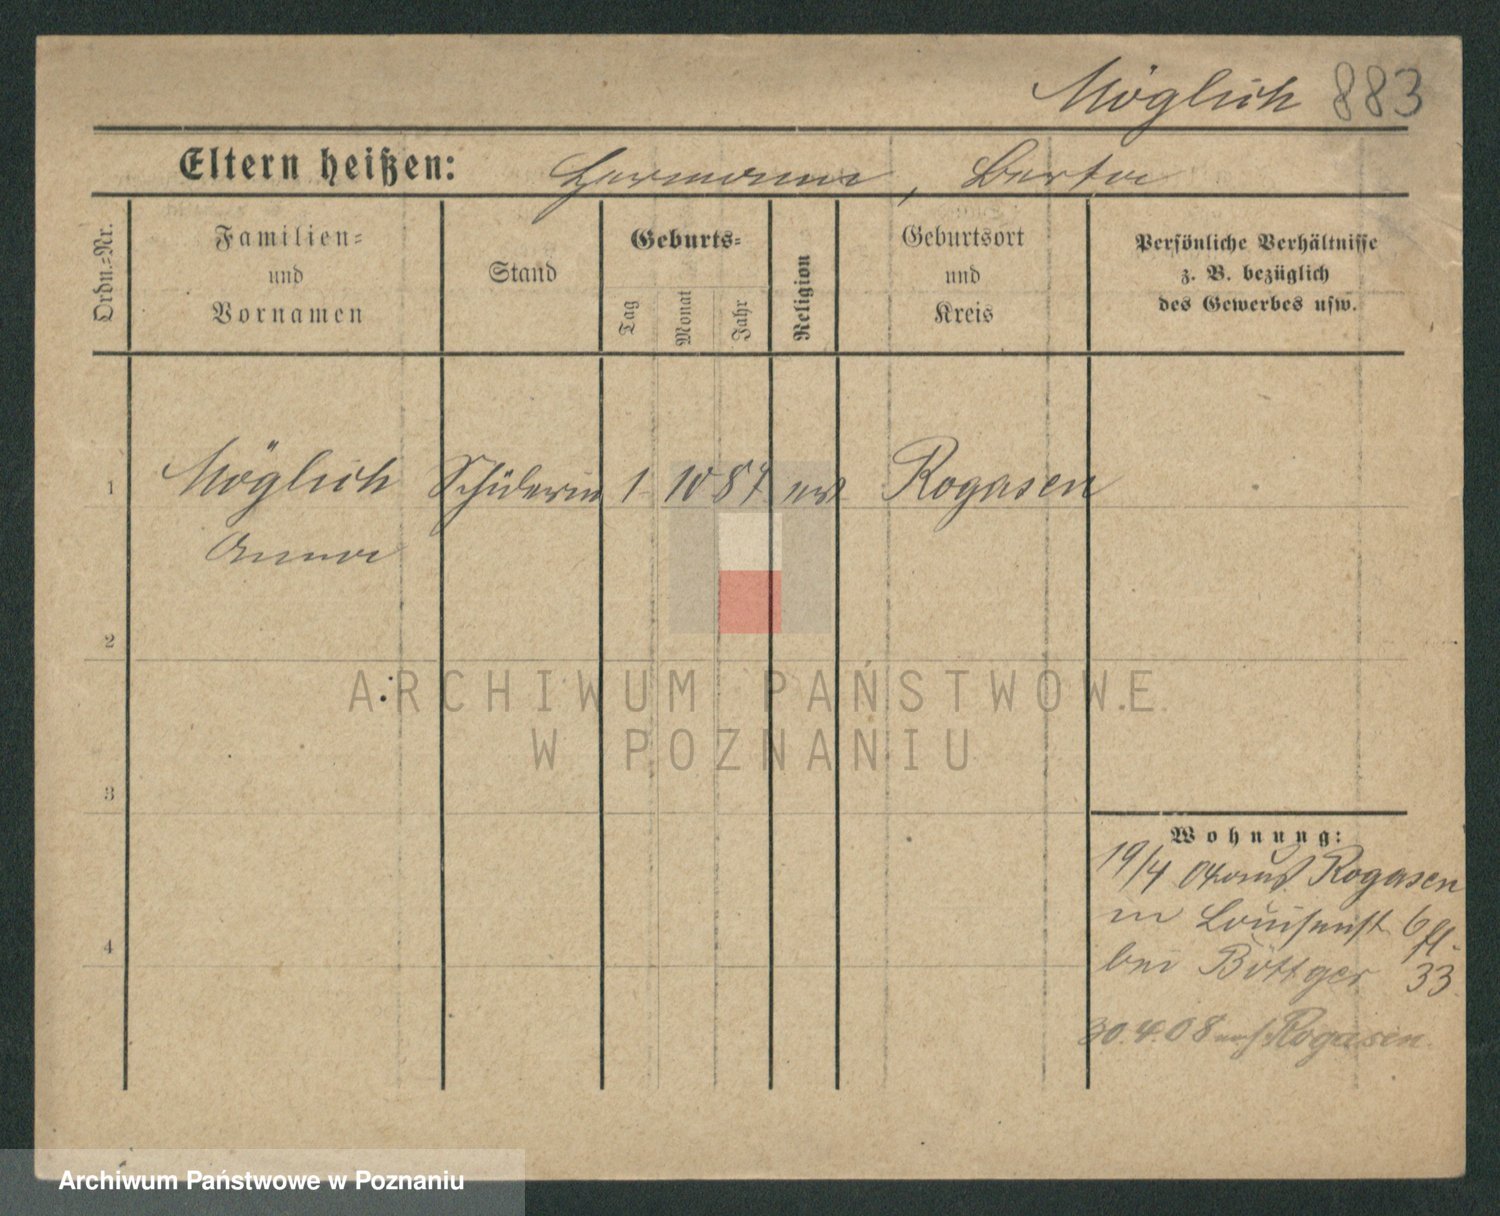 Möglich 883
Eltern heißen: Hermann, Berta
Ordn.=Nr.
Familien=
und
Vornamen
Stand
Geburts=
Tag
Monat
Jahr
Religion
Geburtsort
und
Kreis
Persönliche Verhältnisse
z. B. bezüglich
des Gewerbes usw.
1 Möglich Schülerin 1 10 87 Rogasen
Anna
2
3
4
ARCHIWUM PAŃSTWOWE
W POZNANIU
Wohnung:
19/4 04 aus Rogasen
in Louisenst 6
bei Böttger 33
30.4.08 nach Rogasen.
Archiwum Państwowe w Poznaniu